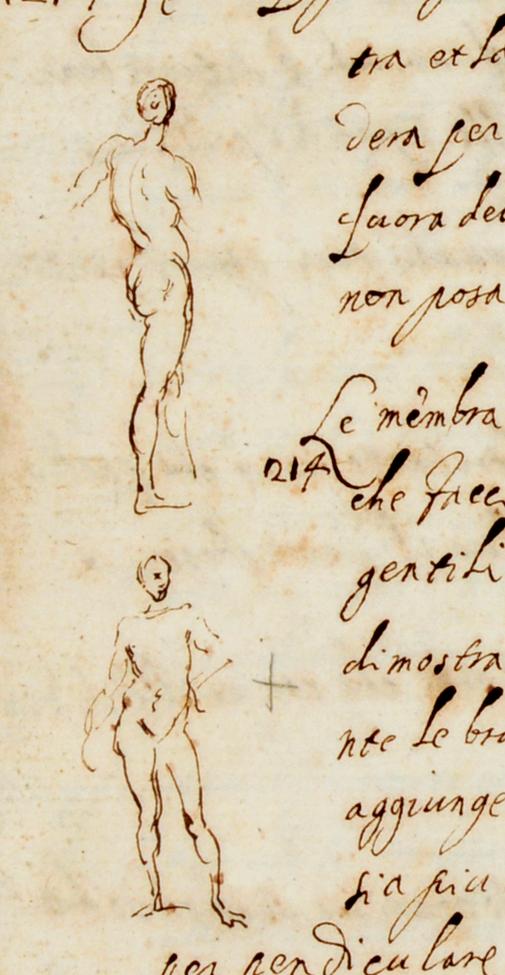 tra et la
dera per
fuora de
non posa
Le membra
214
che face
gentili
dimostra
nte le bra
aggiunge
sia piu
perpendiculare